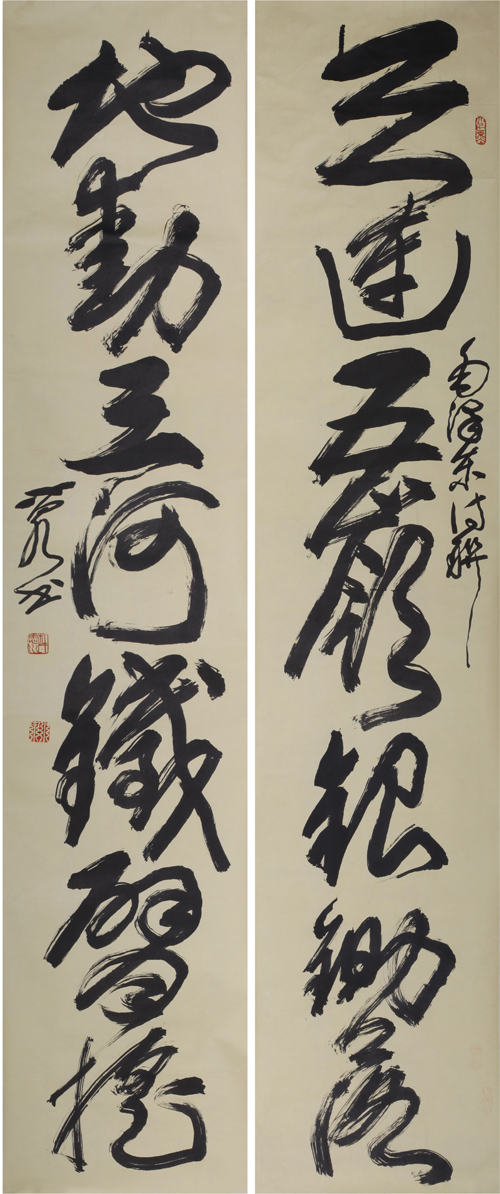 天連五嶺銀鋤落
毛澤東詩聯
地動三河鐵臂搖
书